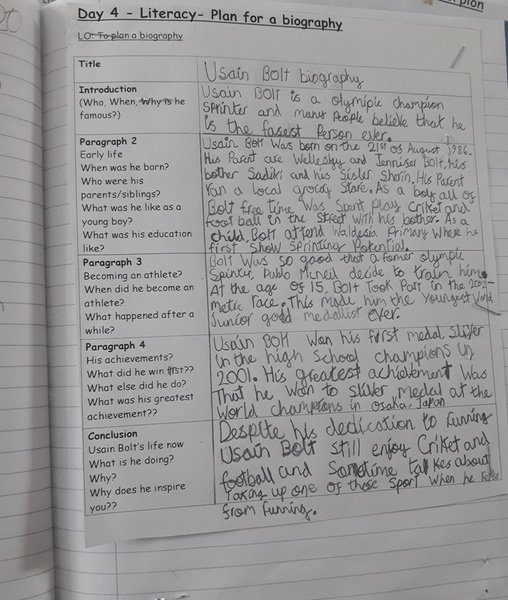 plan
Day 4 - Literacy- Plan for a biography
LO: To plan a biography
Title
Usain Bolt biography
Introduction
(Who, When, Why is he
famous?)
Usain BOLT is a olympic champion
sprinter and many People believe that he
is the fasest Person ever.
Paragraph 2
Early life
When was he born?
Who were his
parents/siblings?
What was he like as a
young boy?
What was his education
like?
Usain Bolt Was born on the 21st of August 1986.
His Parent are Wellesley and Jenniser Bolt, his
bother Sadiki and his Sister Sherin. His Parent
ran a local grocry Store. As a boy all of
Bolt free time Was Sport Play Criket and
foot ball in the Street with his bother. As a
child, Bolt attend Waldesia Primary Where he
first Show Sprinting Potential.
Paragraph 3
Becoming an athlete?
When did he become an
athlete?
What happened after a
while?
Bolt Was so good that a Fomer olympic
Spinter Pablo Mcneil decide to train him.
At the age of 15. Bolt took Part in the 2002-
Metre race. This made him the Youngest World
Junior gold medallist ever.
Paragraph 4
His achievements?
What did he win first??
What else did he do?
What was his greatest
achievement??
Usain Bolt Wan his first medal, Silver
in the high School champions in
2001. His greatest achievement Was
That he Won to Silver medal at the
World champions in osaka Japan
Conclusion
Usain Bolt's life now
What is he doing?
Why?
Why does he inspire
you??
Despite his dedication to running
Usain Bolt still enjoy Criket and
football and Sometime talkes about
Taking up one of those Sport When he
from running.